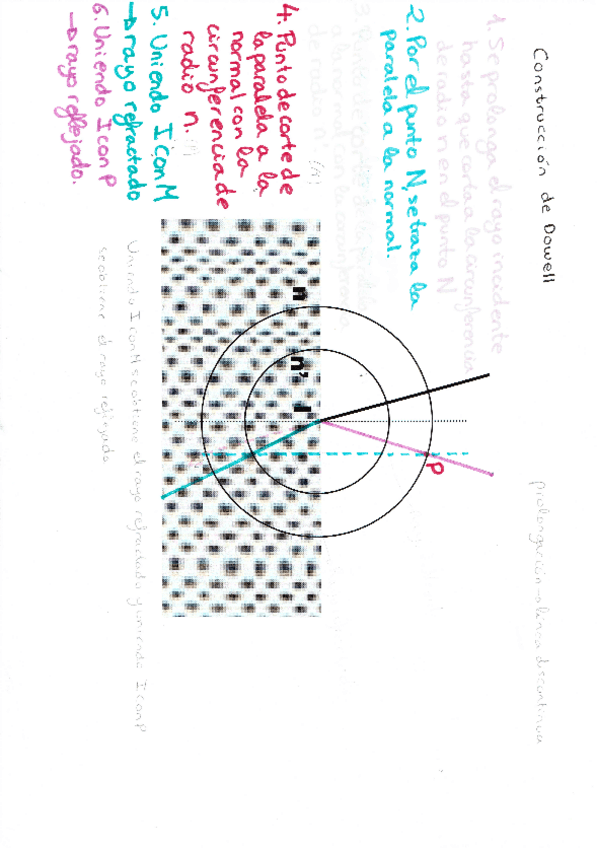 Construcción de Dowell
1. Se prolonga el rayo incidente
hasta que corta a la circunferencia
de radio n en el punto N
2. Por el punto N, se traza la
paralela a la normal.
4. Punto de corte de
la paralela a la
normal con la
circunferencia de
radio n.
5. Uniendo I con M
→ rayo refractado
6. Uniendo I con P
→ rayo reflejado.
n
n'
I
P
prolongación → línea discontinua
Uniendo I con M se obtiene el rayo refractado y uniendo I con P
se obtiene el rayo reflejado